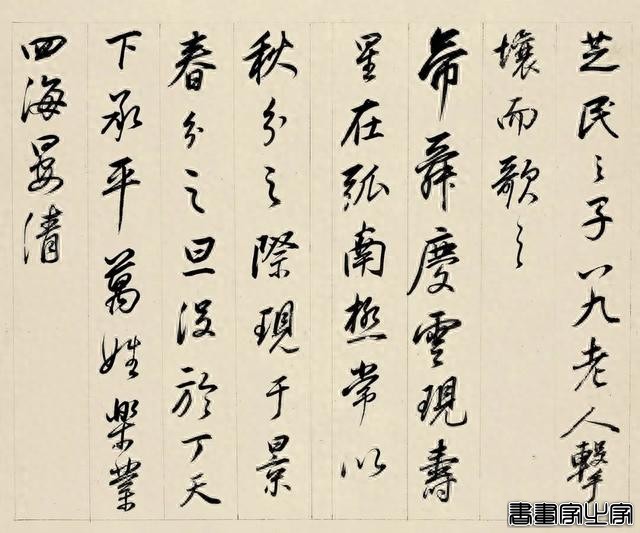 芝民之子八九老人擊
壤而歌之
帝舜慶雲現壽
星在弧南極常以
秋分之際現于景
春分之旦没於丁天
下承平萬姓樂業
四海晏清
書畫